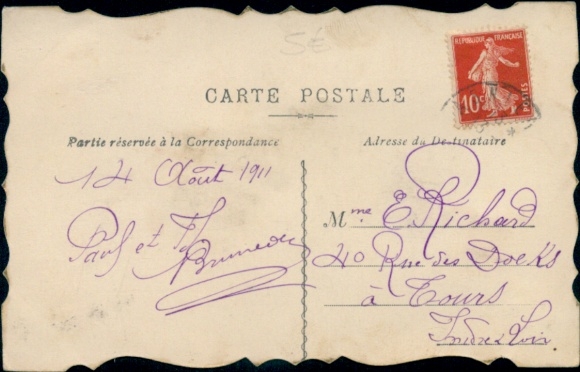 5€
REPUBLIQUE FRANÇAISE
10c
POSTES
CARTE POSTALE
Partie réservée à la Correspondance
Adresse du Destinataire
14 Août 1911
Paul et
Mme E. Richard
40 Rue des Docks
à Tours
Indre & Loir